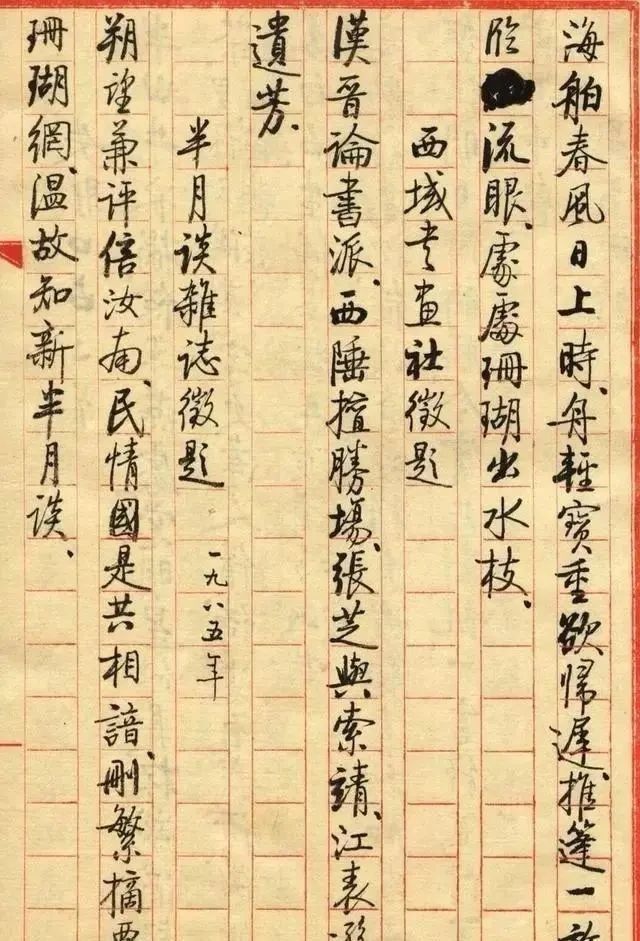 海舶春風日上時、舟輕寶重欲歸遲、推篷一
流眼、處處珊瑚出水枝、
西域書畫社徵題
漢晉論書派、西陲擅勝場、張芝與索靖、江表
遺芳、
半月談雜誌徵題 一九八五年
朔望兼評倍汝南、民情國是共相諳、刪繁摘要
珊瑚網、溫故知新半月談、